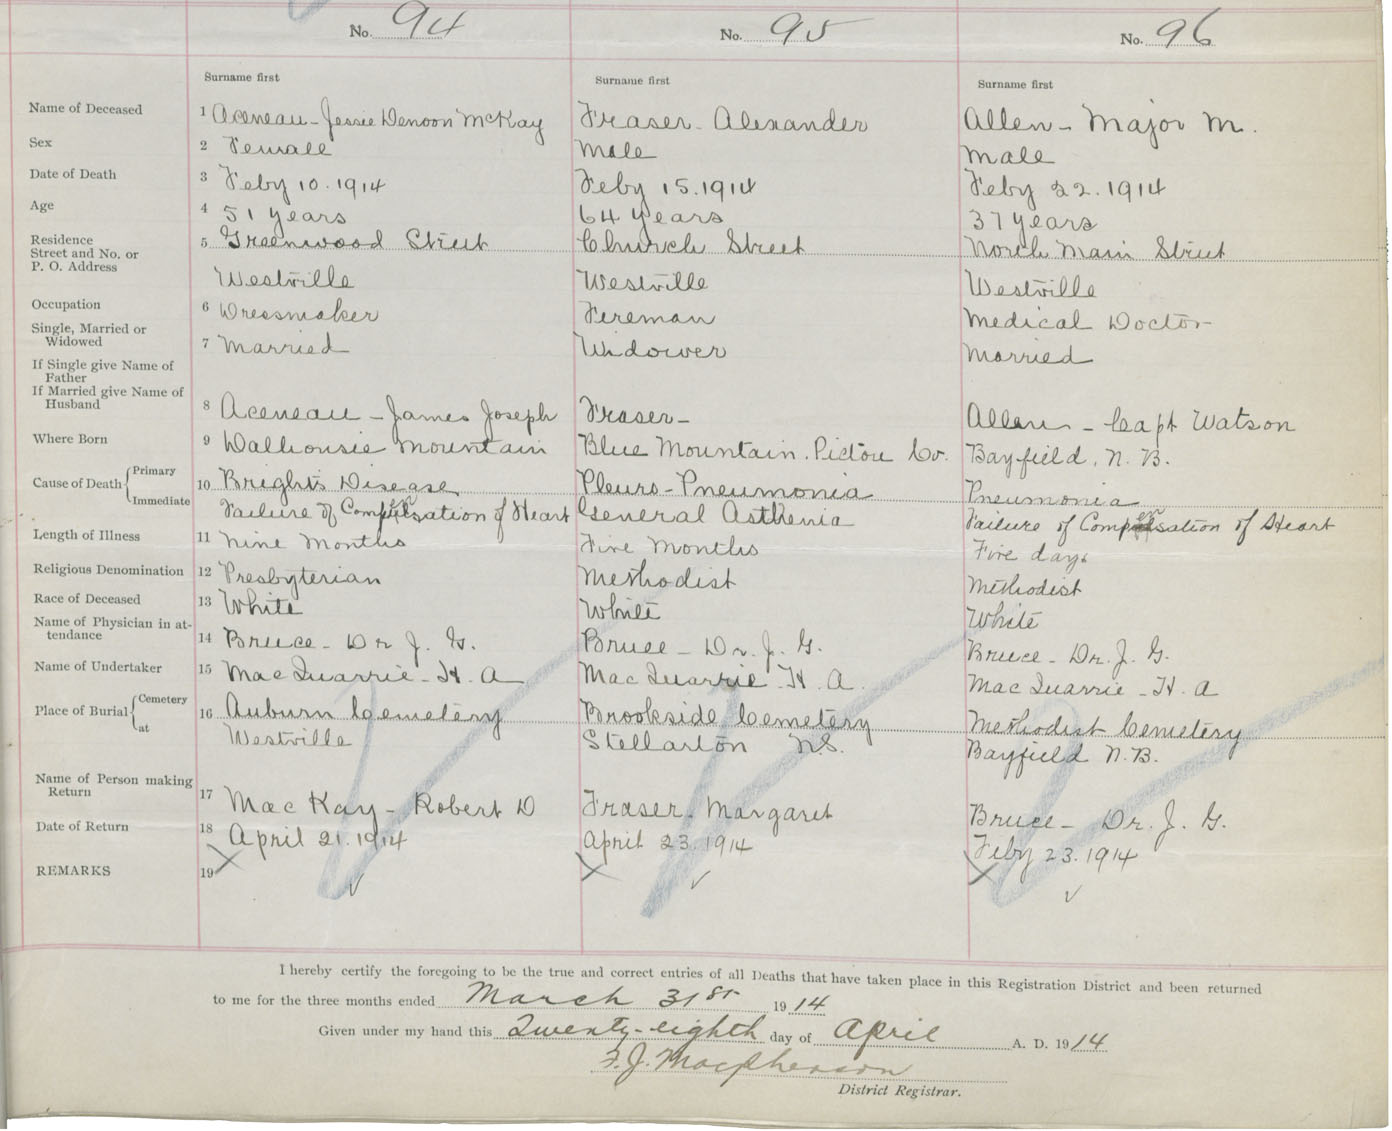 No. 94 No. 95 No. 96
Surname first Surname first Surname first
Name of Deceased 1 Aceneau - Jessie Denoon McKay Fraser - Alexander Allen - Major M.
Sex 2 Female Male Male
Date of Death 3 Feby 10. 1914 Feby 15. 1914 Feby 22. 1914
Age 4 51 years 64 years 37 years
Residence
Street and No. or 5 Greenwood Street Church Street North Main Street
P. O. Address Westville Westville Westville
Occupation 6 Dressmaker Fireman Medical Doctor
Single, Married or
Widowed 7 Married Widower Married
If Single give Name of
Father
If Married give Name of
Husband 8 Aceneau - James Joseph Fraser - Allen - Capt Watson
Where Born 9 Dalhousie Mountain Blue Mountain. Pictou Co. Bayfield, N. B.
Cause of Death { Primary 10 Bright's Disease Pleuro-Pneumonia Pneumonia
Immediate Failure of Compensation of Heart General Asthenia Failure of Compensation of Heart
Length of Illness 11 Nine Months Five Months Five days
Religious Denomination 12 Presbyterian Methodist Methodist
Race of Deceased 13 White White White
Name of Physician in at-
tendance 14 Bruce - Dr J. G. Bruce - Dr. J. G. Bruce - Dr. J. G.
Name of Undertaker 15 MacQuarrie - H. A MacQuarrie - H. A. MacQuarrie - H. A
Place of Burial { Cemetery 16 Auburn Cemetery Brookside Cemetery Methodist Cemetery
at Westville Stellarton N.S. Bayfield N.B.
Name of Person making
Return 17 MacKay - Robert D Fraser - Margaret Bruce - Dr. J. G.
Date of Return 18 April 21. 1914 April 23. 1914 Feby 23. 1914
REMARKS 19
I hereby certify the foregoing to be the true and correct entries of all Deaths that have taken place in this Registration District and been returned
to me for the three months ended March 31st 1914
Given under my hand this Twenty-eighth day of April A. D. 1914
F. J. Macpherson
District Registrar.